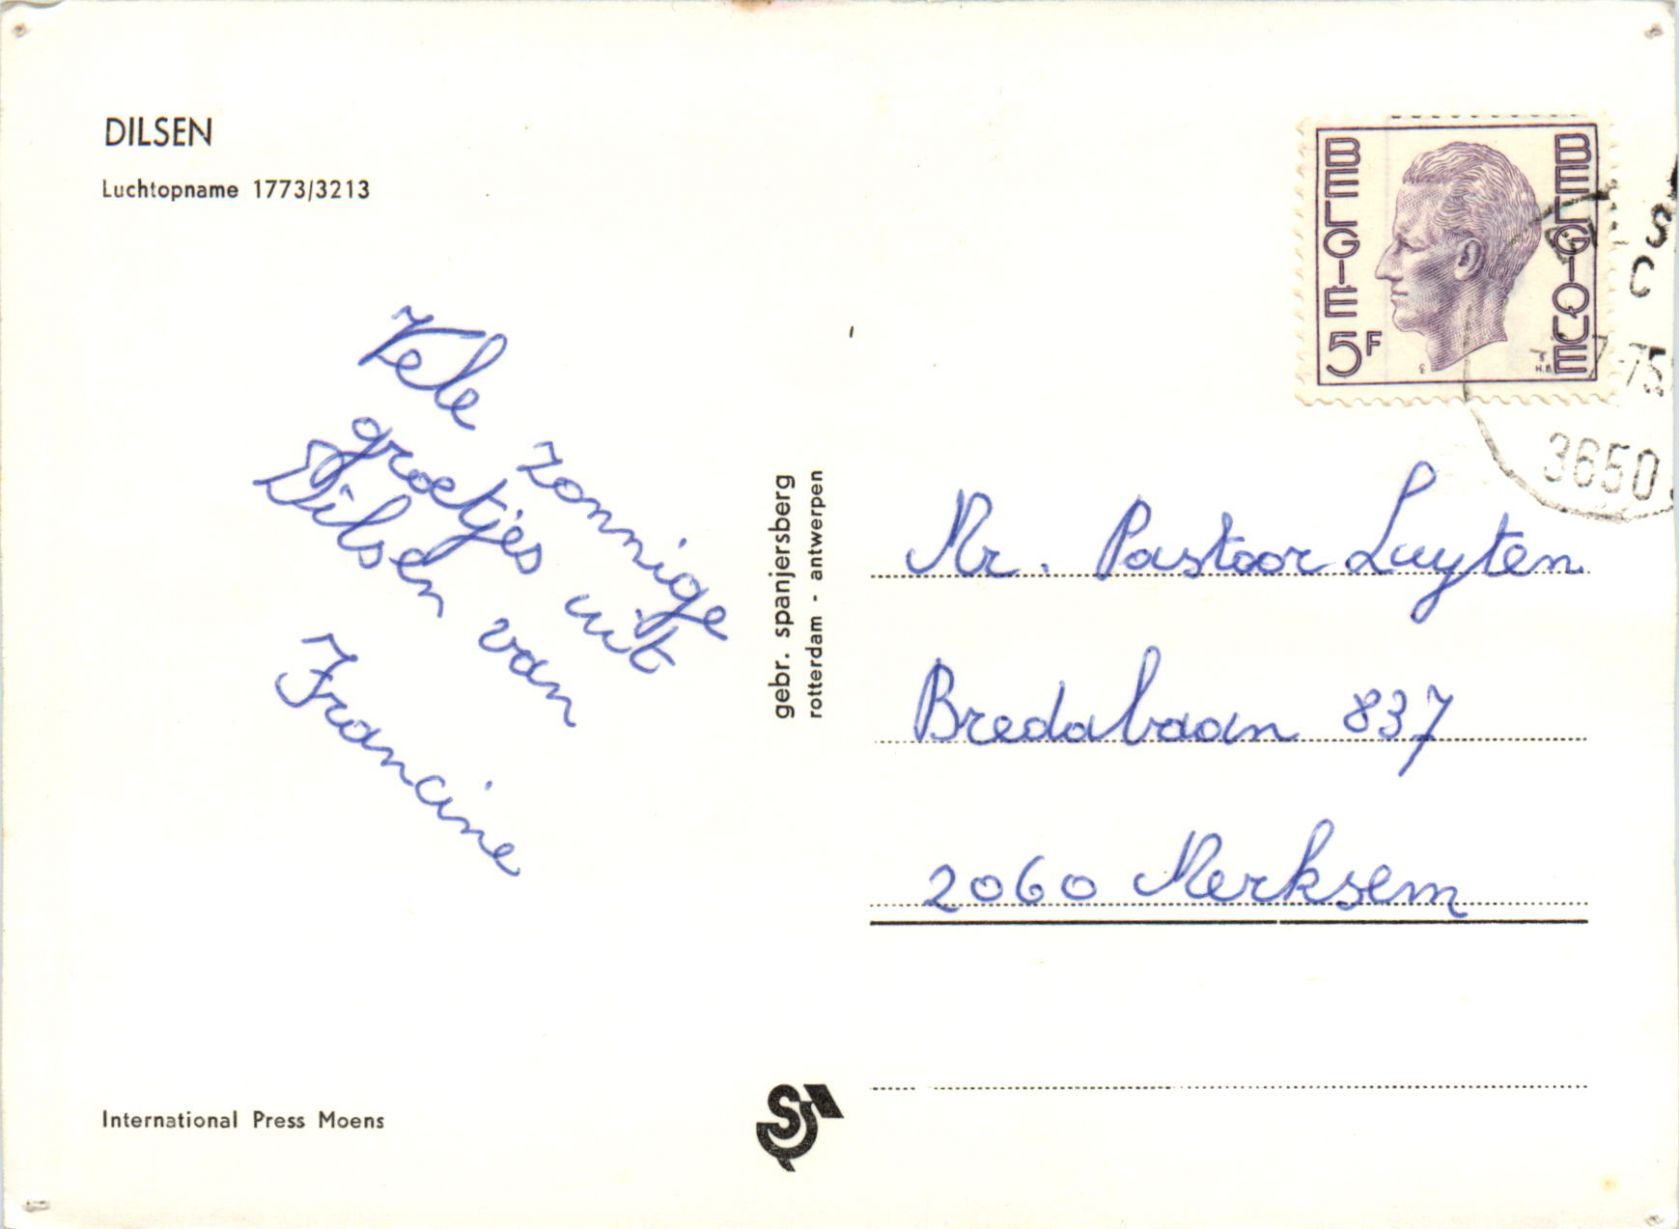 DILSEN
Luchtopname 1773/3213
Vele zonnige
groetjes uit
Dilsen van
Francine
International Press Moens
gebr. spanjersberg
rotterdam - antwerpen
BELGIE
BELGIQUE
5F
75
3650
Mr. Pastoor Luyten
Bredabaan 837
2060 Merksem